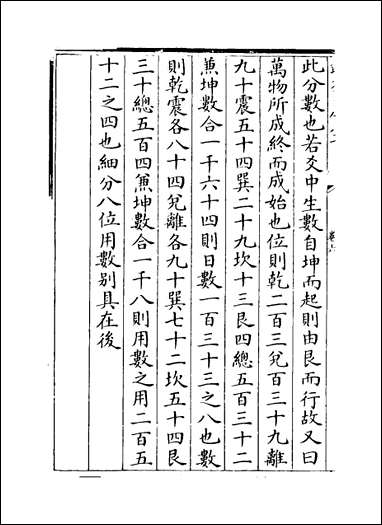 此分數也若爻中生數自坤而起則由艮而行故又曰
萬物所成終而成始也位則乾二百三兌百三十九離
九十震五十四巽二十九坎十三艮四總五百三十二
兼坤數合一千六十四則日數一百三十三之八也數
則乾震各八十四兌離各九十巽七十二坎五十四艮
三十總五百四兼坤數合一千八則用數之用二百五
十二之四也細分八位用數别具在後